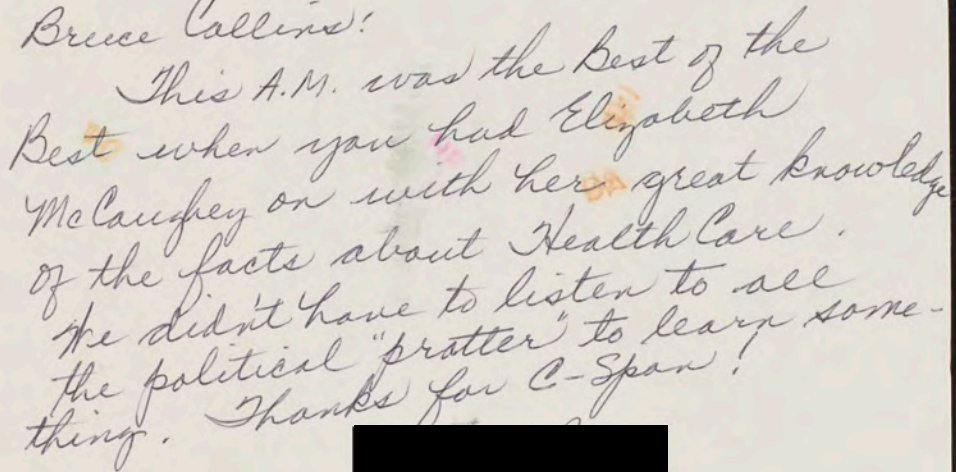 Bruce Collins!
This A.M. was the Best of the
Best when you had Elizabeth
McCaughey on with her great knowledge
of the facts about Health Care.
We didn't have to listen to all
the political "pratter" to learn some-
thing. Thanks for C-Span!